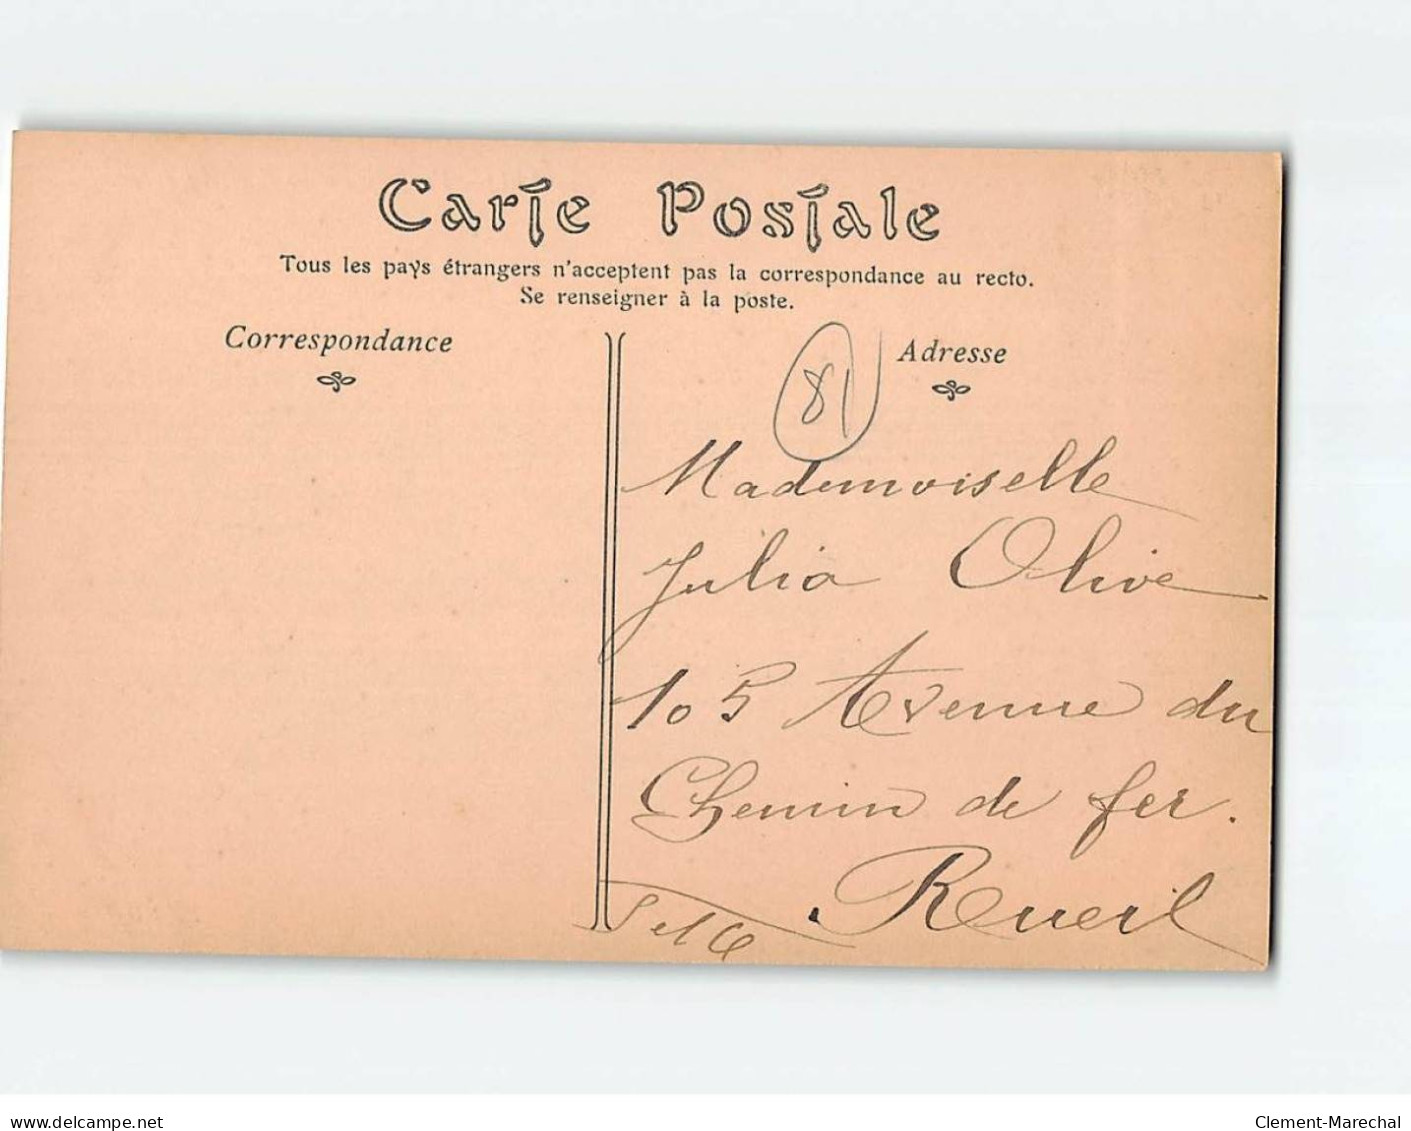 Carte Postale
Tous les pays étrangers n'acceptent pas la correspondance au recto.
Se renseigner à la poste.
Correspondance
Adresse
81
Mademoiselle
Julia Olive
105 Avenue du
Chemin de fer.
Rueil
S et O
www.delcampe.net
Clement-Marechal